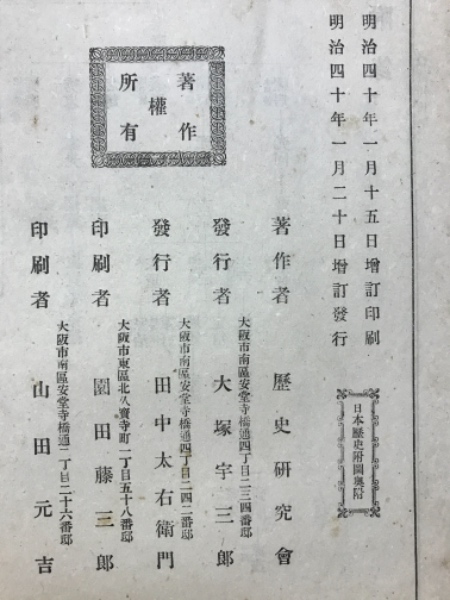 明治四十年一月十五日增訂印刷
明治四十年一月二十日增訂發行
日本歷史附圖奧附
著作權所有
著作者 歷史硏究會
大阪市南區安堂寺橋通四丁目二三四番邸
發行者 大塚宇三郎
大阪市南區安堂寺橋通四丁目二四二番邸
發行者 田中太右衛門
大阪市東區北久寶寺町一丁目五十八番邸
印刷者 園田藤三郎
大阪市南區安堂寺橋通二丁目二十六番邸
印刷者 山田元吉